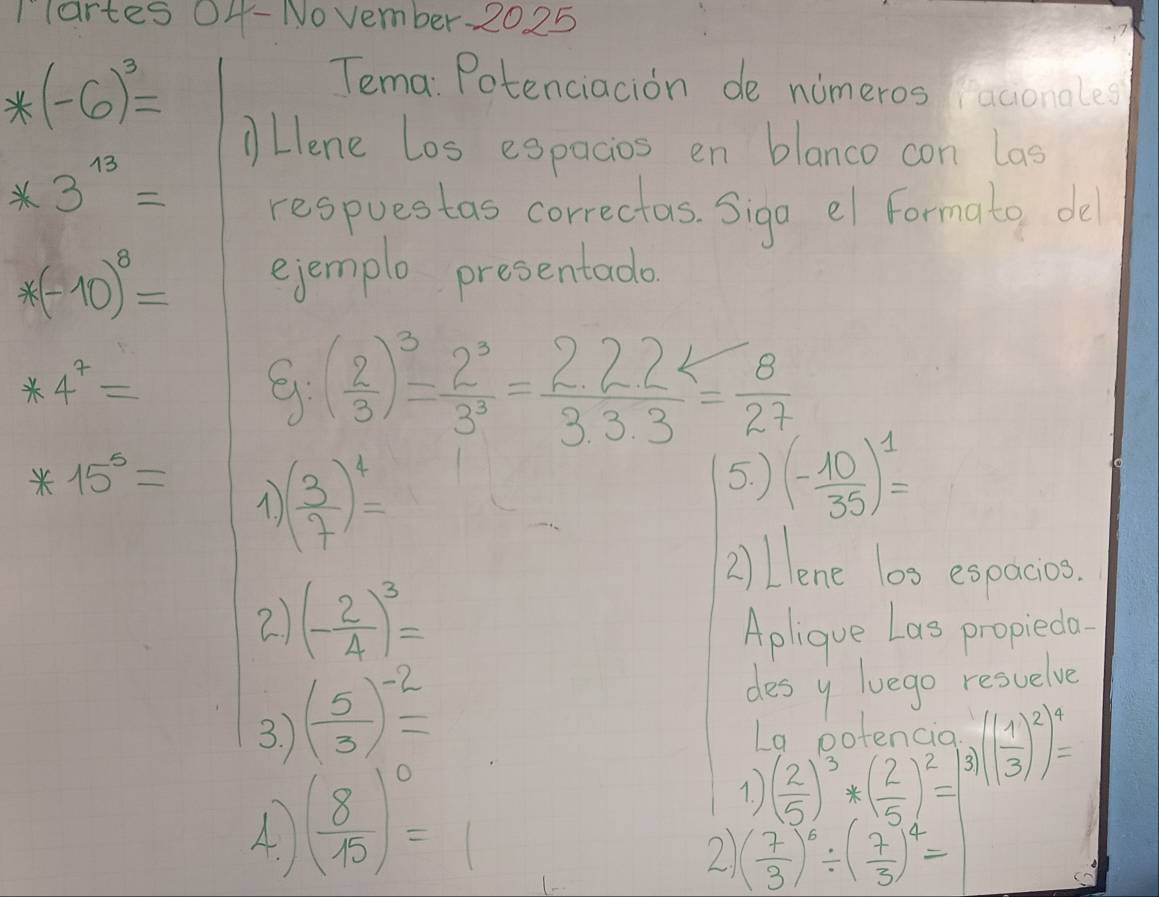 Martes 04-November-2025
* (-6)³ =
* 3¹³ =
* (-10)⁸ =
* 4⁷ =
* 15⁵ =
Tema: Potenciación de números racionales
1) Llene Los espacios en blanco con las
respuestas correctas. Siga el Formato del
ejemplo presentado.
Ej: (2/3)³ = 2³/3³ = 2.2.2/3.3.3 ← = 8/27
1.) (3/7)⁴ =
2.) (-2/4)³ =
3.) (5/3)⁻² =
4.) (8/15)⁰ =
5.) (-10/35)¹ =
2) Llene los espacios.
Aplique Las propieda-
des y luego resuelve
La potencia.
1.) (2/5)³ * (2/5)² =
2.) (7/3)⁶ ÷ (7/3)⁴ =
3.) ((1/3)²)⁴ =